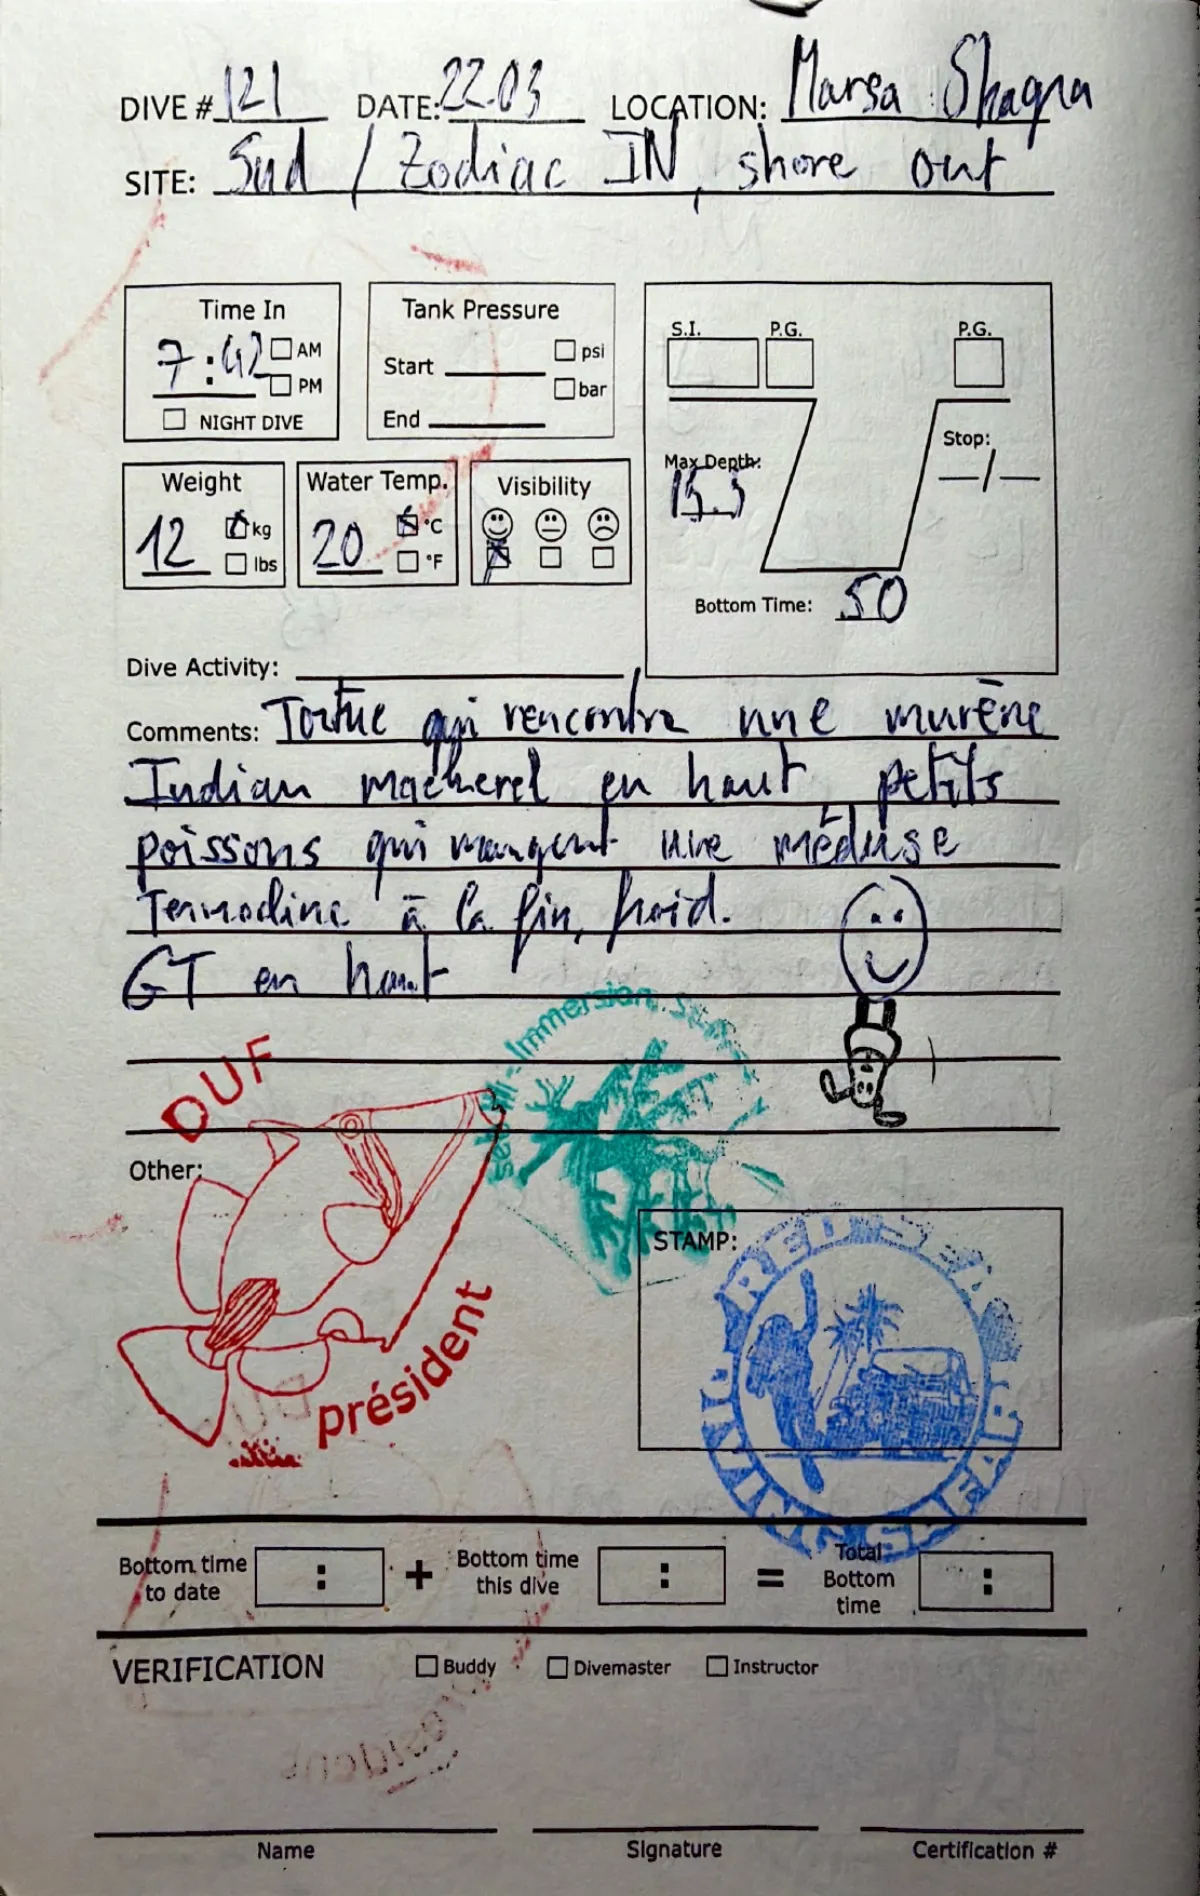 DIVE # 121 DATE: 22.03 LOCATION: Marsa Shagra
SITE: Sud / Zodiac IN, shore out
Time In
7:42 AM
PM
NIGHT DIVE
Tank Pressure
Start psi
bar
End
S.I. P.G. P.G.
Stop:
Max Depth:
15.5
Bottom Time: 50
Weight
12 kg
lbs
Water Temp.
20 °C
°F
Visibility
Dive Activity:
Comments: Tortue qui rencontra une murène
Indian mackerel en haut, petits
poissons qui mangent une méduse
Termocline à la fin, froid.
GT en haut
DUF
président
Immersion
Other:
STAMP:
RED SEA
DIVING SAFARI
Bottom time to date : + Bottom time this dive : = Total Bottom time :
VERIFICATION Buddy Divemaster Instructor
Name Signature Certification #